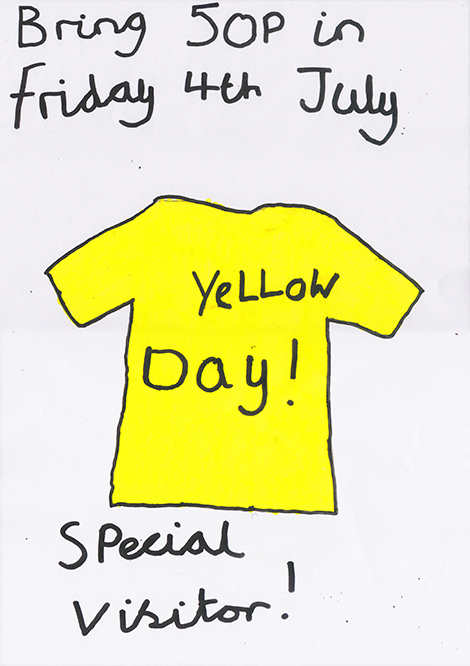 Bring 50P in
Friday 4th July
YeLLOW
Day!
SPecial
Visitor!